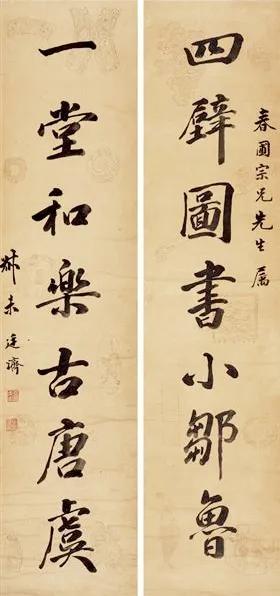 春圃宗兄先生属
四壁圖書小鄒魯
一堂和樂古唐虞
叔未廷濟